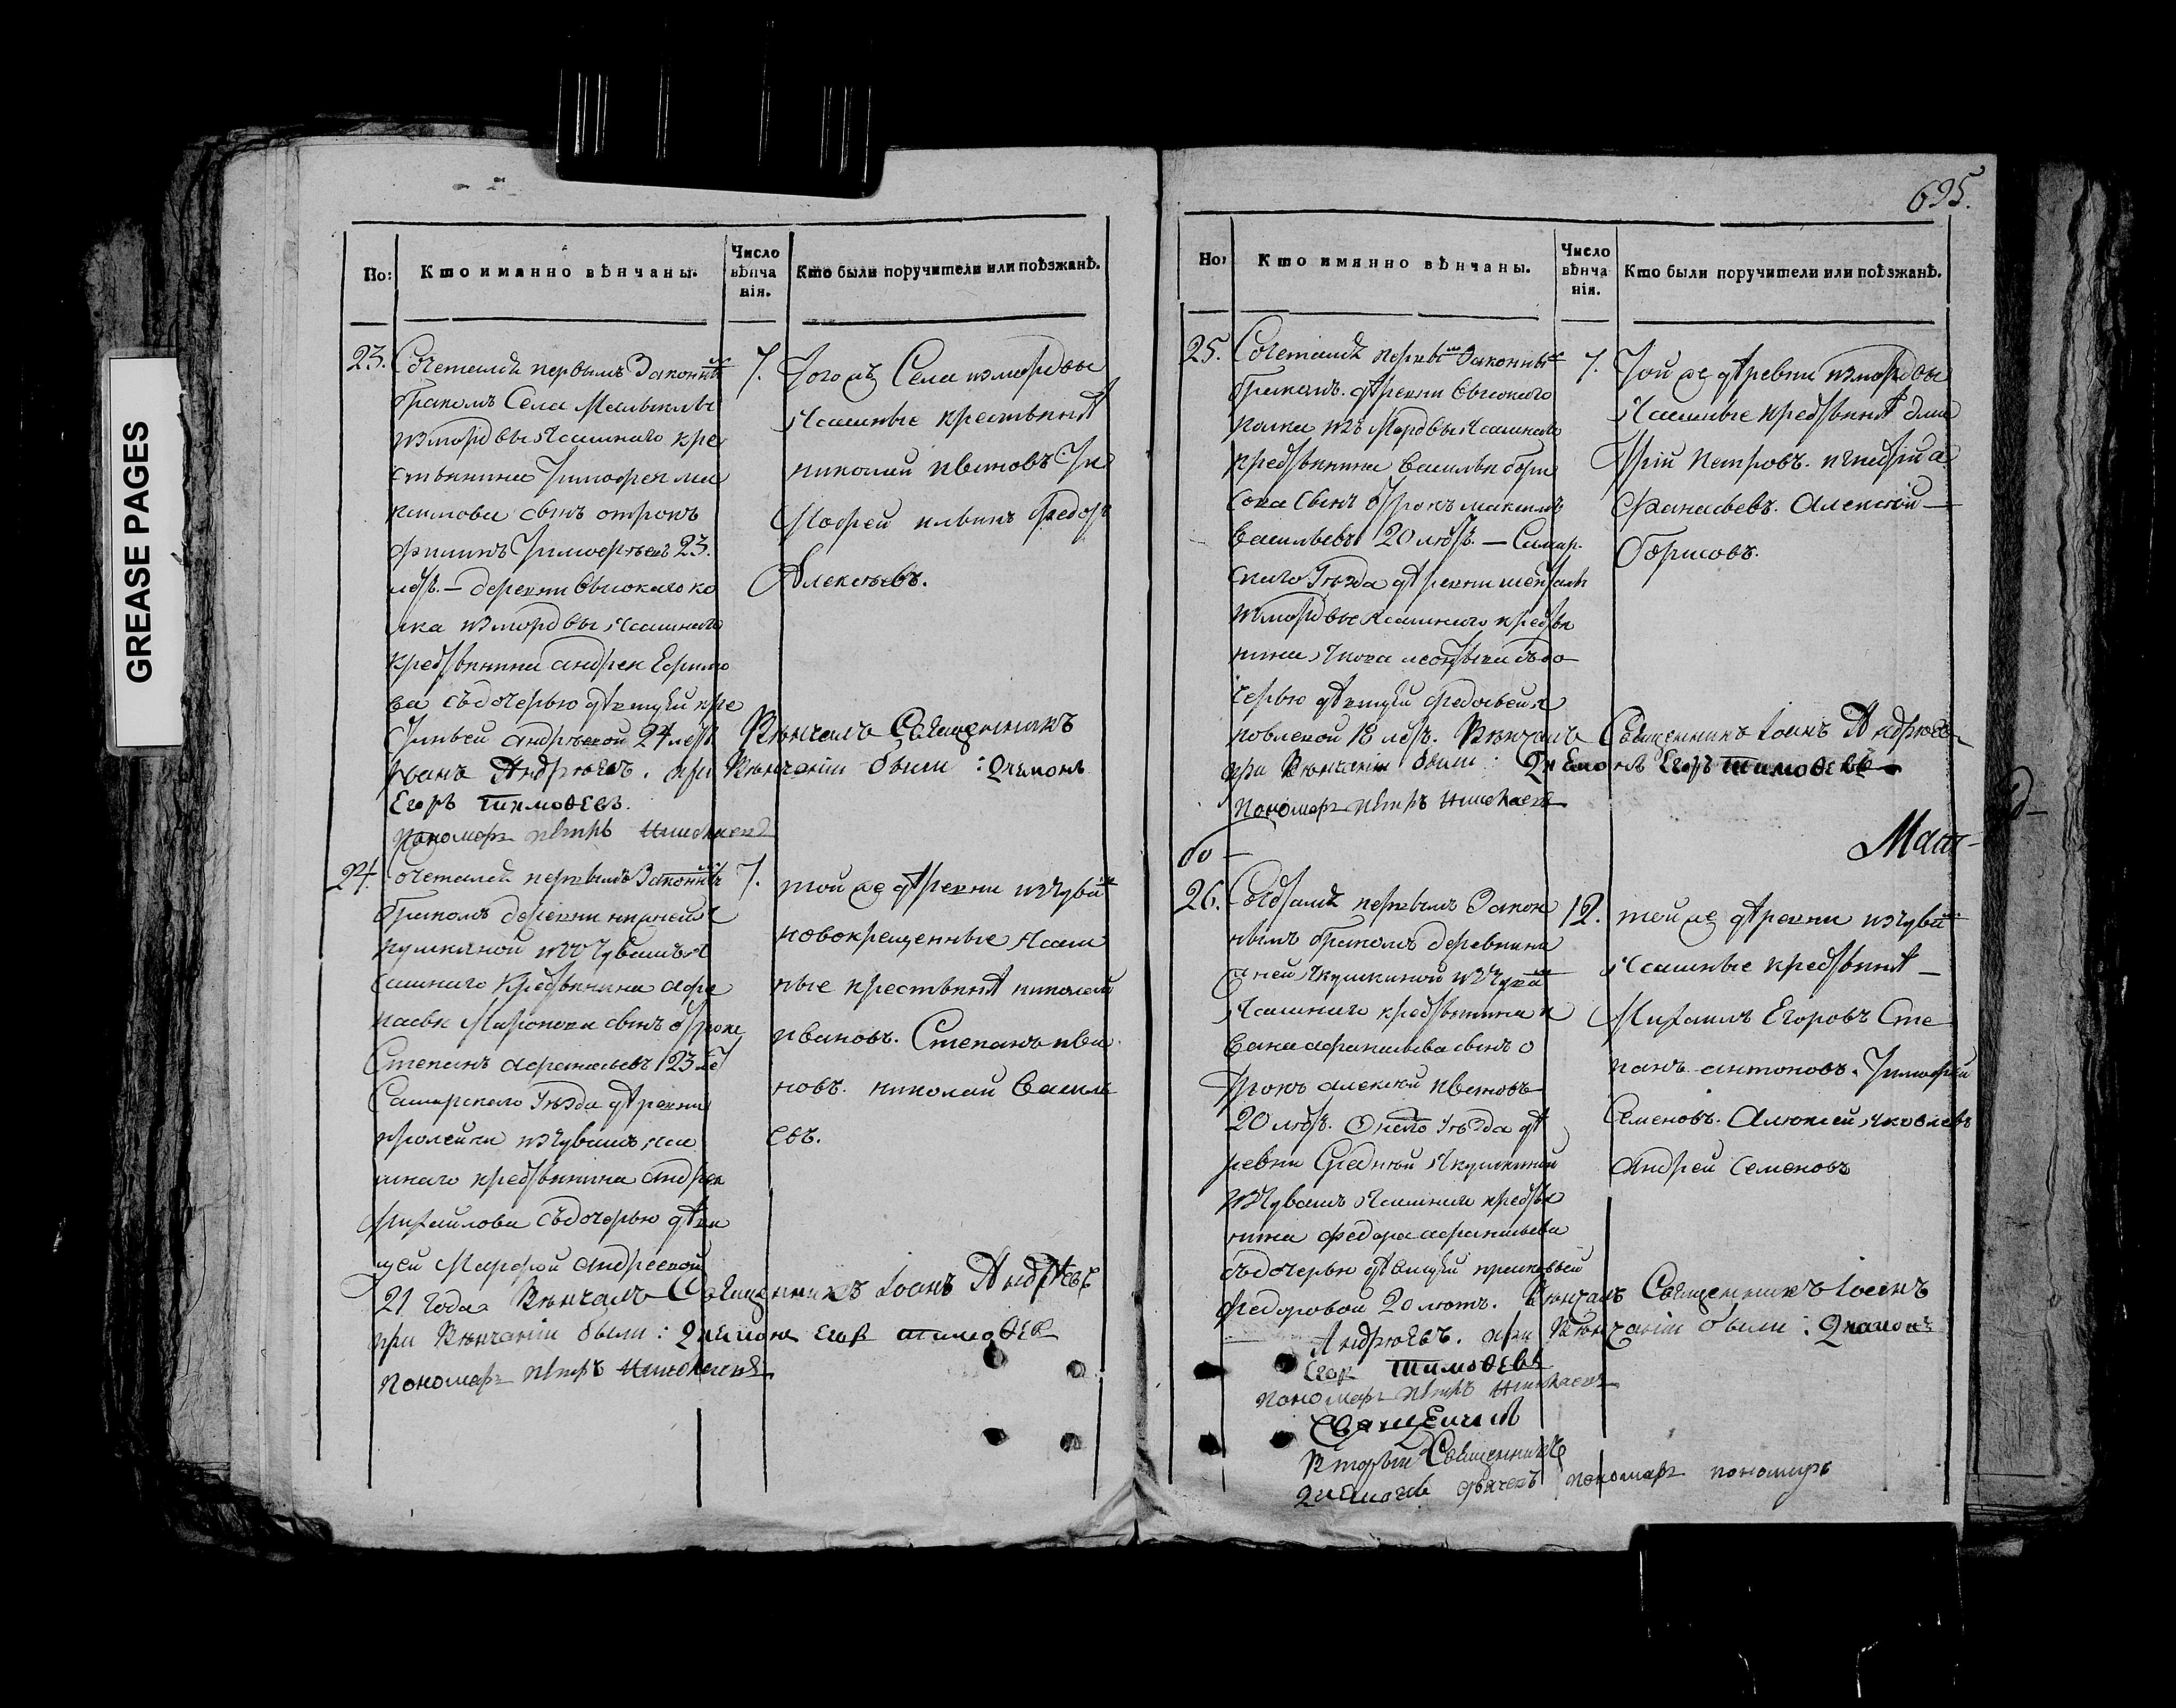 GREASE PAGES
695.
Но:
Кто имянно вѣнчаны.
Число
вѣнча
нія.
Кто были поручители или поѣзжанѣ.
23.
Сочетался первымъ Законнымъ
бракомъ Села
измордвы Ясашнаго кре
стьянина Тимофея ма
ксимова сынъ отрокъ
филипъ Тимофѣевъ 23.
летъ. — деревни высокаго ко
лка измордвы Ясашнаго
крестьянина андрея Ефимо
ва съдочерью девицей
андрѣевой 24 летъ
Вѣнчалъ Священникъ
Іоанъ Андрѣевъ. при Вѣнчаніи были: Діаконъ
Егоръ тимоѳеевъ.
Пономарь петръ
7.
Тогожъ Села измордвы
Ясашные крестьяня
николай ивановъ Ти
мофей ильинъ Федоръ
Алексѣевъ.
24.
сочетался первымъ Законнымъ
бракомъ деревни нижней Я
кушкиной изчувашъ Я
сашнаго Крестьянина афа
насья Миронова сынъ отрокъ
Степанъ афанасьевъ 23 ле
Самарскаго Уѣзда деревни
изчувашъ Яса
шнаго крестьянина андрея
Михайлова съдочерью деви
цей Марфой андреевой
21 года Вѣнчалъ Священникъ Іоанъ Андрѣевъ
при Вѣнчаніи были: Діаконъ Егоръ тимоѳеевъ
Пономарь петръ
7.
той же деревни изчувашъ
новокрещенные Ясаш
ные крестьяня николай
ивановъ. Степанъ ива
новъ. николай Василь
евъ.
Но:
Кто имянно вѣнчаны.
Число
вѣнча
нія.
Кто были поручители или поѣзжанѣ.
25.
Сочетался первымъ Законнымъ
бракомъ. деревни высокаго
колка изъ Мордвы Ясашнаго
крестьянина василья бори
сова сынъ отрокъ максимъ
васильевъ 20 летъ. — Самар-
скаго Уѣзда деревни
измордвы Ясашнаго крестья
нина Якова леонтьева съдо
черью девицей федосьей Я
ковлевой 18 летъ. Вѣнчалъ Священникъ Іоанъ Андрѣевъ
при Вѣнчаніи были: Діаконъ Егоръ тимоѳеевъ
Пономарь петръ
7.
Той же деревни измордвы
Ясашные крестьяня дми
трій Петровъ. игнатій а
фанасьевъ. Алексей —
борисовъ.
Маіѧ
26.
Сочетался первымъ Закон
нымъ бракомъ деревни ни
жней Якушкиной изчувашъ
Ясашнаго крестьянина и
вана афанасьева сынъ о
трокъ алексей ивановъ
20 летъ. Онаго Уѣзда де
ревни Средней Якушкиной
изчувашъ Ясашнаго крестья
нина федора афанасьева
съдочерью девицей прасковьей
федоровой 20 летъ. Вѣнчалъ Священникъ Іоанъ
Андрѣевъ. при Вѣнчаніи были: Діаконъ
Егоръ тимоѳеевъ
Пономарь петръ
Священникъ
Вторый Священникъ
Діаконъ дьячекъ пономарь пономарь
12.
той же деревни изчувашъ
Ясашные крестьяня —
Михаилъ Егоровъ Сте
панъ антоновъ. Тимофей
Семеновъ. Алексей Яковлевъ
андрей Семеновъ